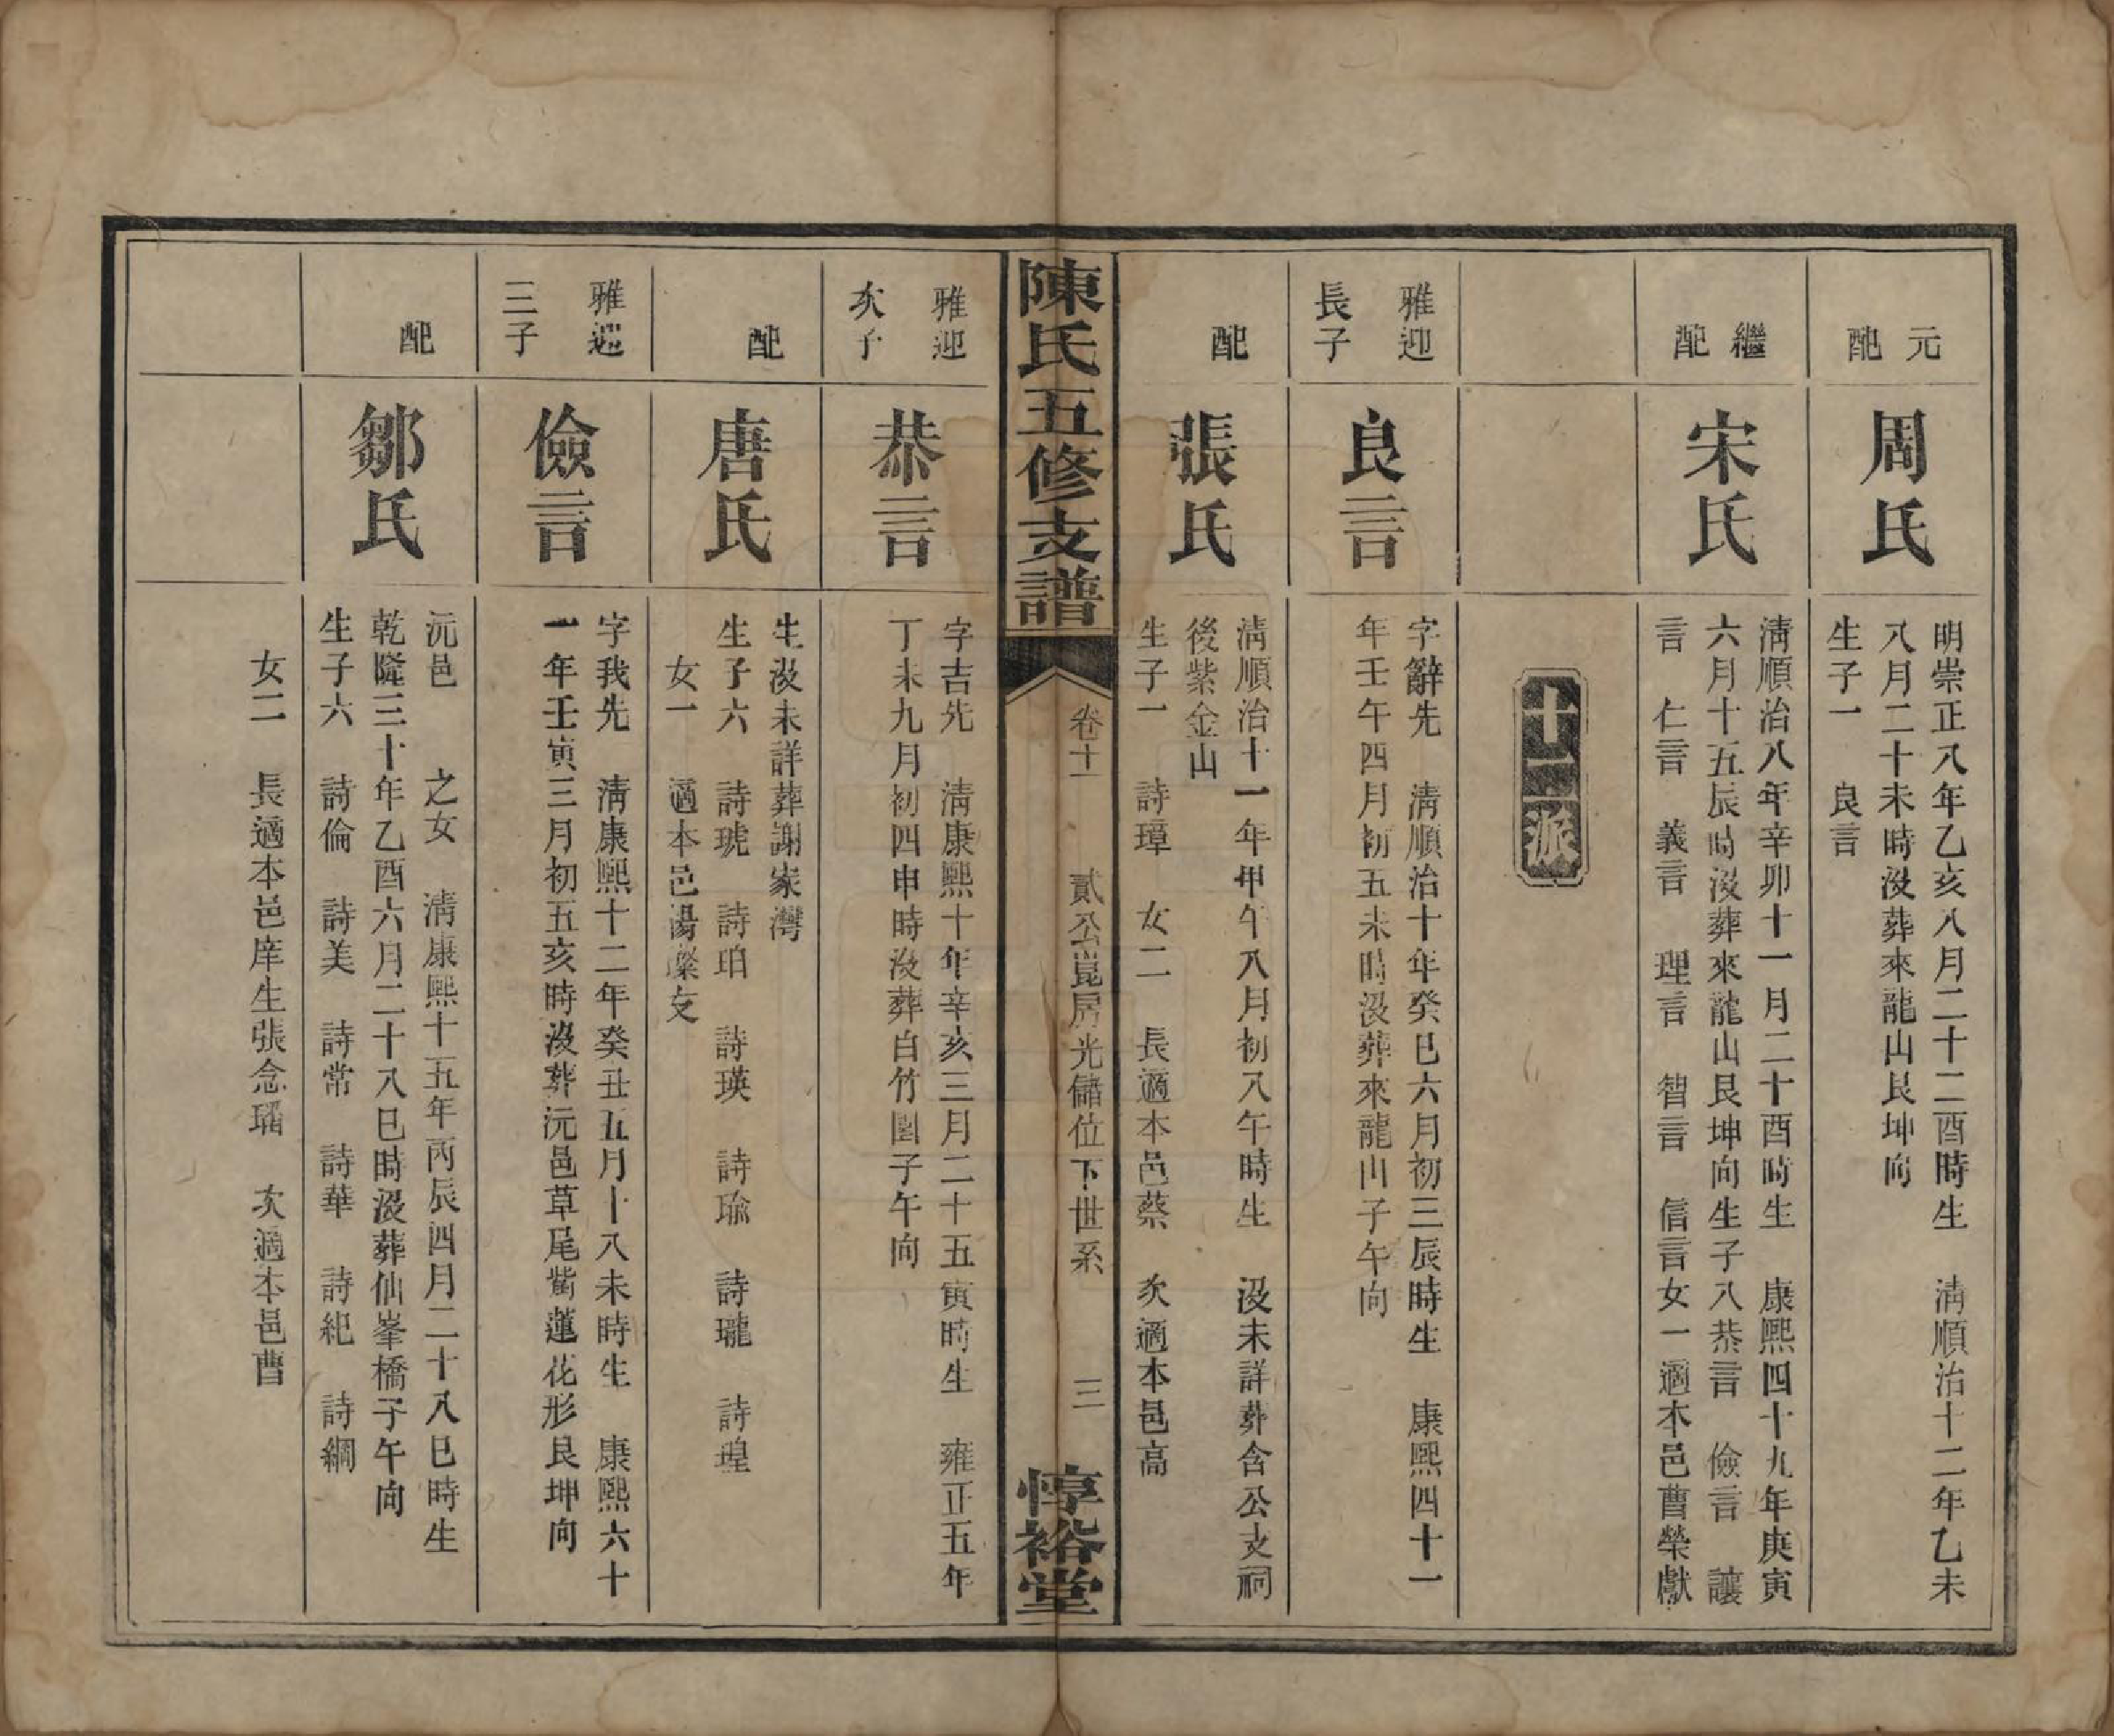 元
配
周氏
明崇正八年乙亥八月二十二酉時生　清順治十二年乙未
八月二十未時沒葬來龍山艮坤向
生子一　良言
繼
配
宋氏
清順治八年辛卯十一月二十酉時生　康熙四十九年庚寅
六月十五辰時沒葬來龍山艮坤向生子八恭言　儉言　讓
言　仁言　義言　理言　智言　信言女一適本邑曹榮獻
十一派
雅迎
長子
良言
字辭先　清順治十年癸巳六月初三辰時生　康熙四十一
年壬午四月初五未時沒葬來龍山子午向
配
張氏
清順治十一年甲午八月初八午時生　沒未詳葬含公支祠
後紫金山
生子一　詩璋　女二　長適本邑蔡　次適本邑高
陳氏五修支譜
卷十一　貳公崑房光儲位下世系　三
惇裕堂
雅迎
次子
恭言
字吉先　清康熙十年辛亥三月二十五寅時生　雍正五年
丁未九月初四申時沒葬白竹園子午向
配
唐氏
生沒未詳葬謝家灣
生子六　詩琥　詩珀　詩瑛　詩瑜　詩瓏　詩瑝
女一　適本邑湯燦文
雅迎
三子
儉言
字我先　清康熙十二年癸丑五月十八未時生　康熙六十
一年壬寅三月初五亥時沒葬沅邑草尾觜蓮花形艮坤向
配
鄒氏
沅邑　之女　清康熙十五年丙辰四月二十八巳時生
乾隆三十年乙酉六月二十八巳時沒葬仙峯橋子午向
生子六　詩倫　詩美　詩常　詩華　詩紀　詩綱
女二　長適本邑庠生張念璠　次適本邑曹